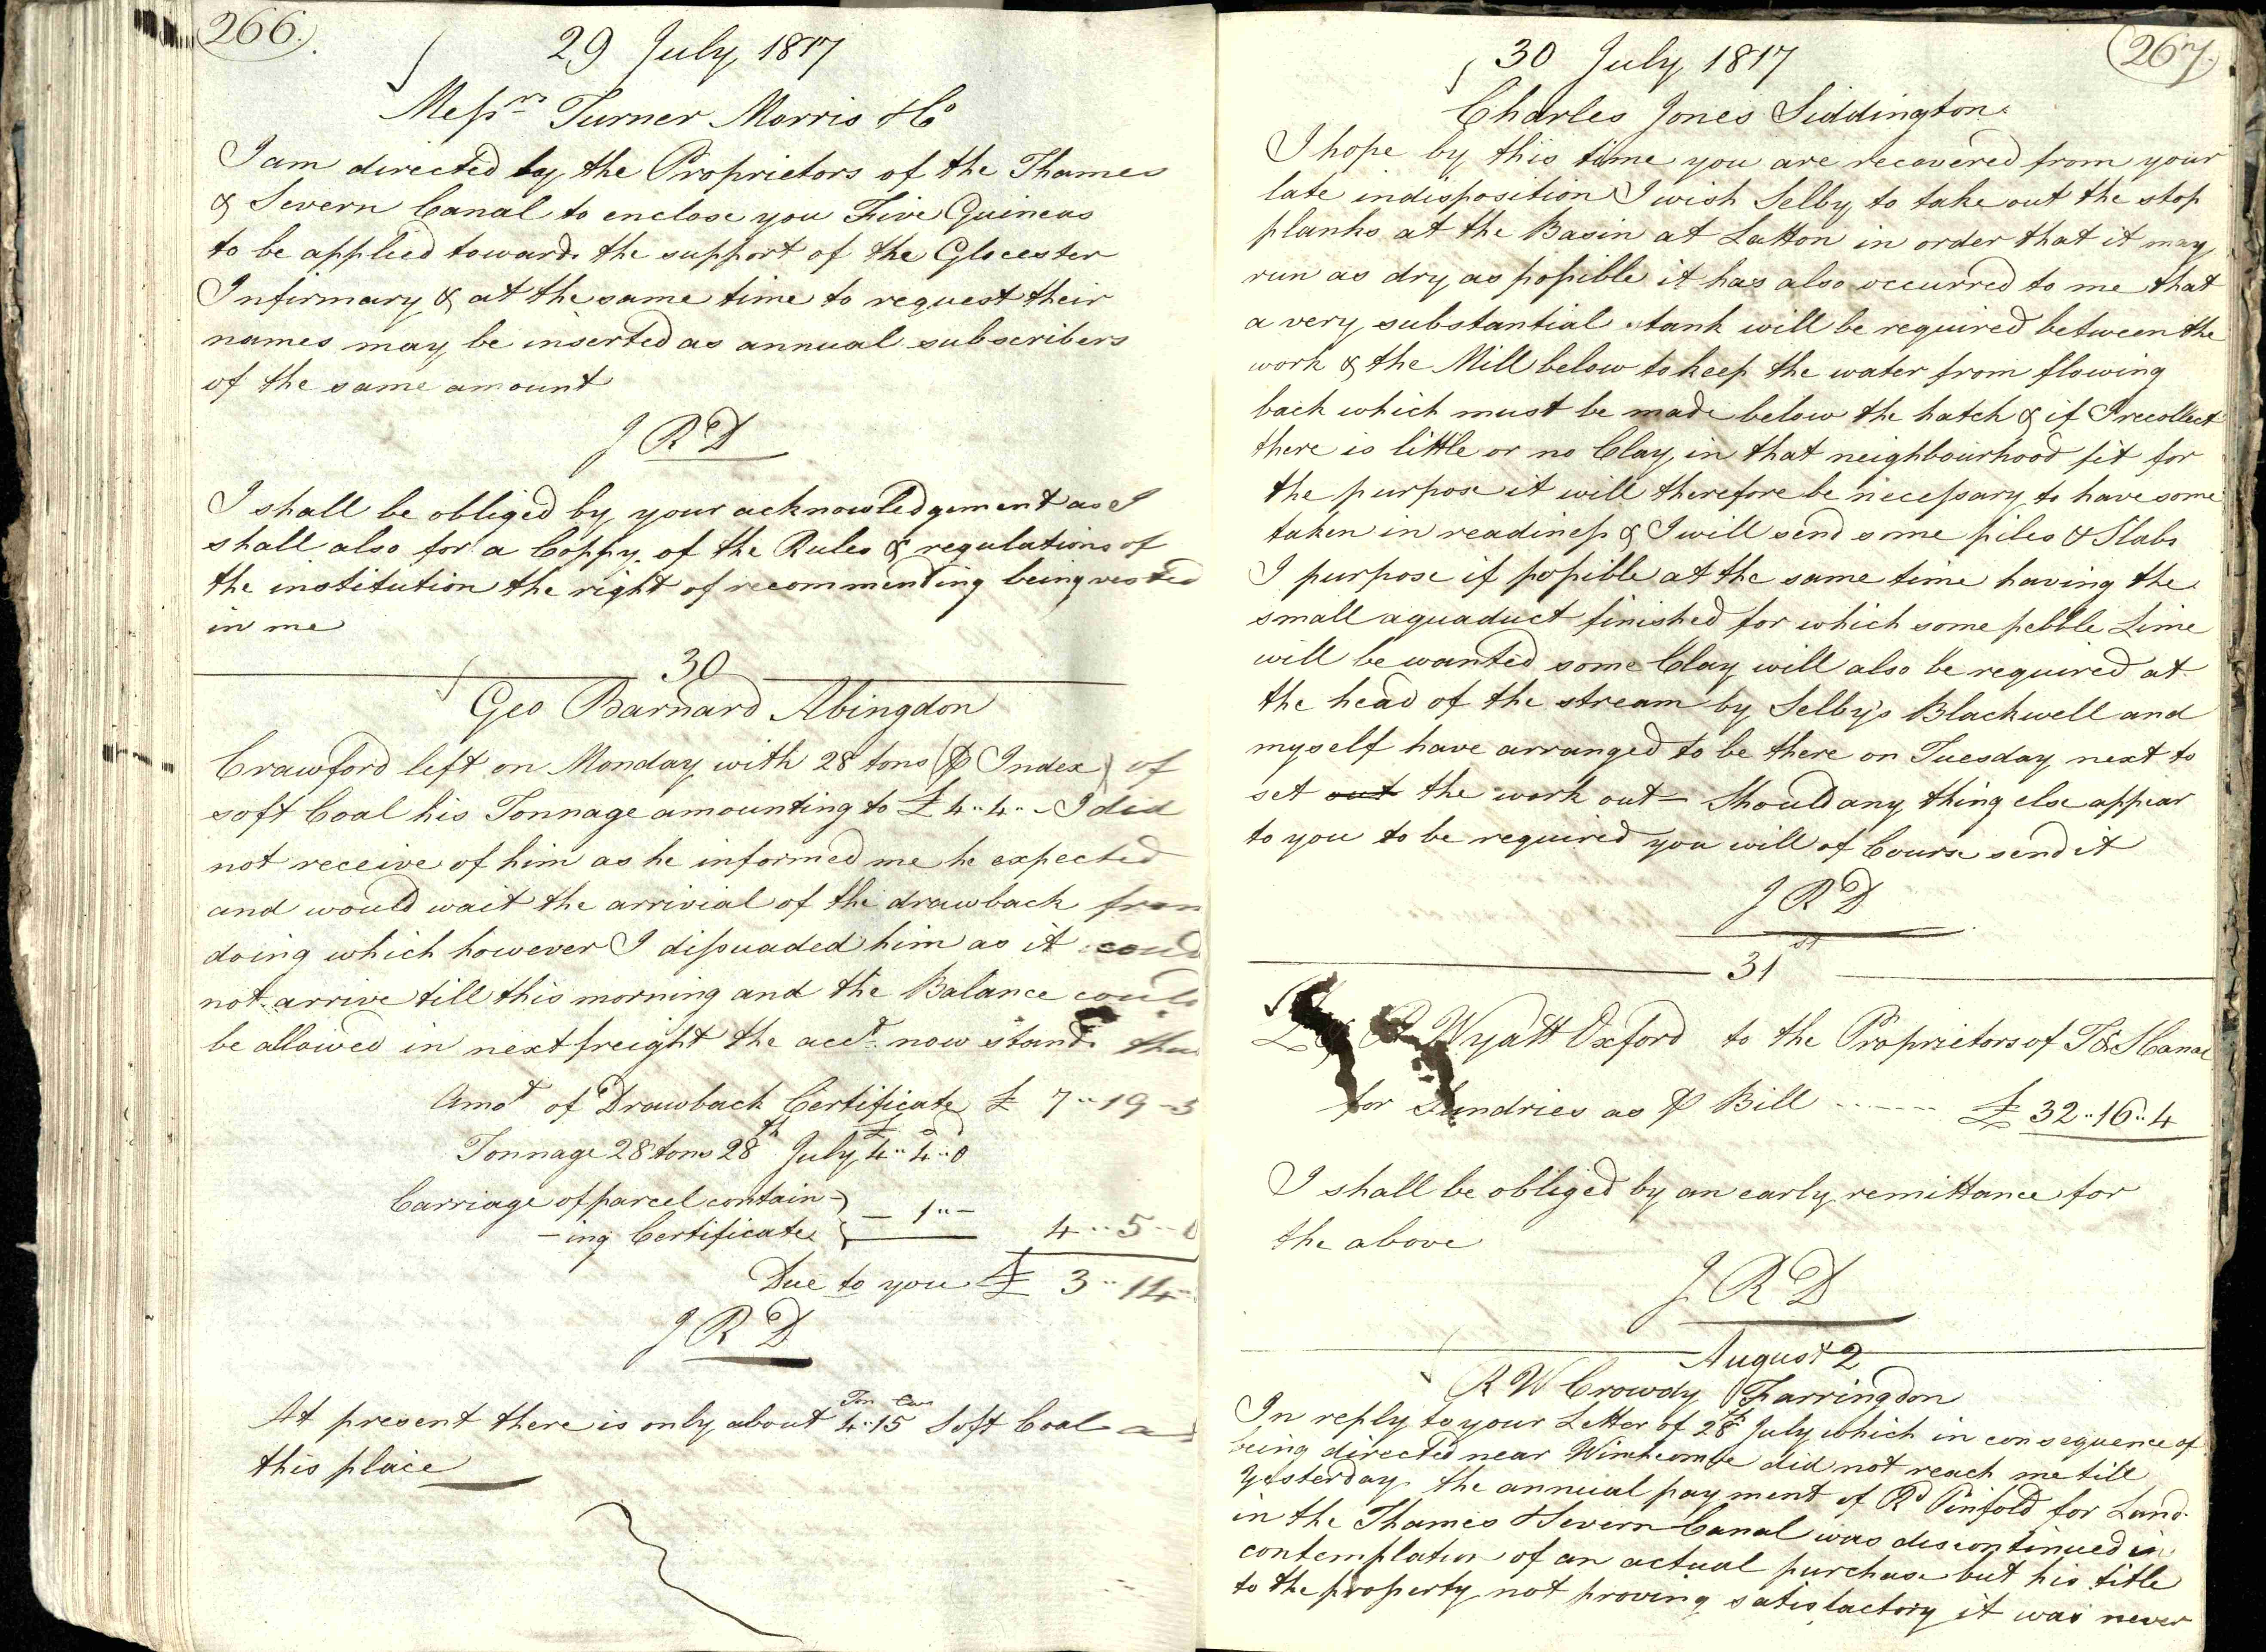 266.
29 July 1817
Messrs Turner Morris & Co
I am directed by the Proprietors of the Thames
& Severn Canal to enclose you Five Guineas
to be applied towards the support of the Glocester
Infirmary & at the same time to request their
names may be inserted as annual subscribers
of the same amount
J R D
I shall be obliged by your acknowledgement as I
shall also for a Coppy of the Rules & regulations of
the institution the right of recommending being vested
in me
30
Geo Barnard Abingdon
Crawford left on Monday with 28 tons (⅌ Index) of
soft Coal his Tonnage amounting to £4..4..- I did
not receive of him as he informed me he expected
and would wait the arrivial of the drawback from
doing which however I dissuaded him as it could
not arrive till this morning and the Balance could
be allowed in next freight the acct. now stands thus
Amot of Drawback Certificate £ 7..19-3
Tonnage 28 tons 28th July £4..4..0
Carriage of parcel contain-
-ing Certificate } - 1..- 4..5..0
Due to you £ 3..14..
J R D
At present there is only about Ton 4..Cwt 15 Soft Coal at
this place
267.
30 July 1817
Charles Jones Siddington
I hope by this time you are recovered from your
late indisposition I wish Selby to take out the stop
planks at the Basin at Latton in order that it may
run as dry as possible it has also occurred to me that
a very substantial stank will be required between the
work & the Mill below to keep the water from flowing
back which must be made below the hatch & if I recollect
there is little or no Clay in that neighbourhood fit for
the purpose it will therefore be necessary to have some
taken in readiness & I will send some piles & Slabs
I purpose if possible at the same time having the
small aquaduct finished for which some pebble Lime
will be wanted some Clay will also be required at
the head of the stream by Selby's Blackwell and
myself have arranged to be there on Tuesday next to
set out the work out - Should any thing else appear
to you to be required you will of Course send it
J R D
31st
Wyatt Oxford to the Proprietors of T & S Canal
for Sundries as ⅌ Bill ------ £ 32..16..4
I shall be obliged by an early remittance for
the above
J R D
August 2
R W Crowdy Farringdon
In reply to your Letter of 28th July which in consequence of
being directed near Winhcombe did not reach me till
Yesterday. the annual payment of Rd Pinfold for Land
in the Thames & Severn Canal was discontinued in
contemplation of an actual purchase but his title
to the property not proving satisfactory it was never